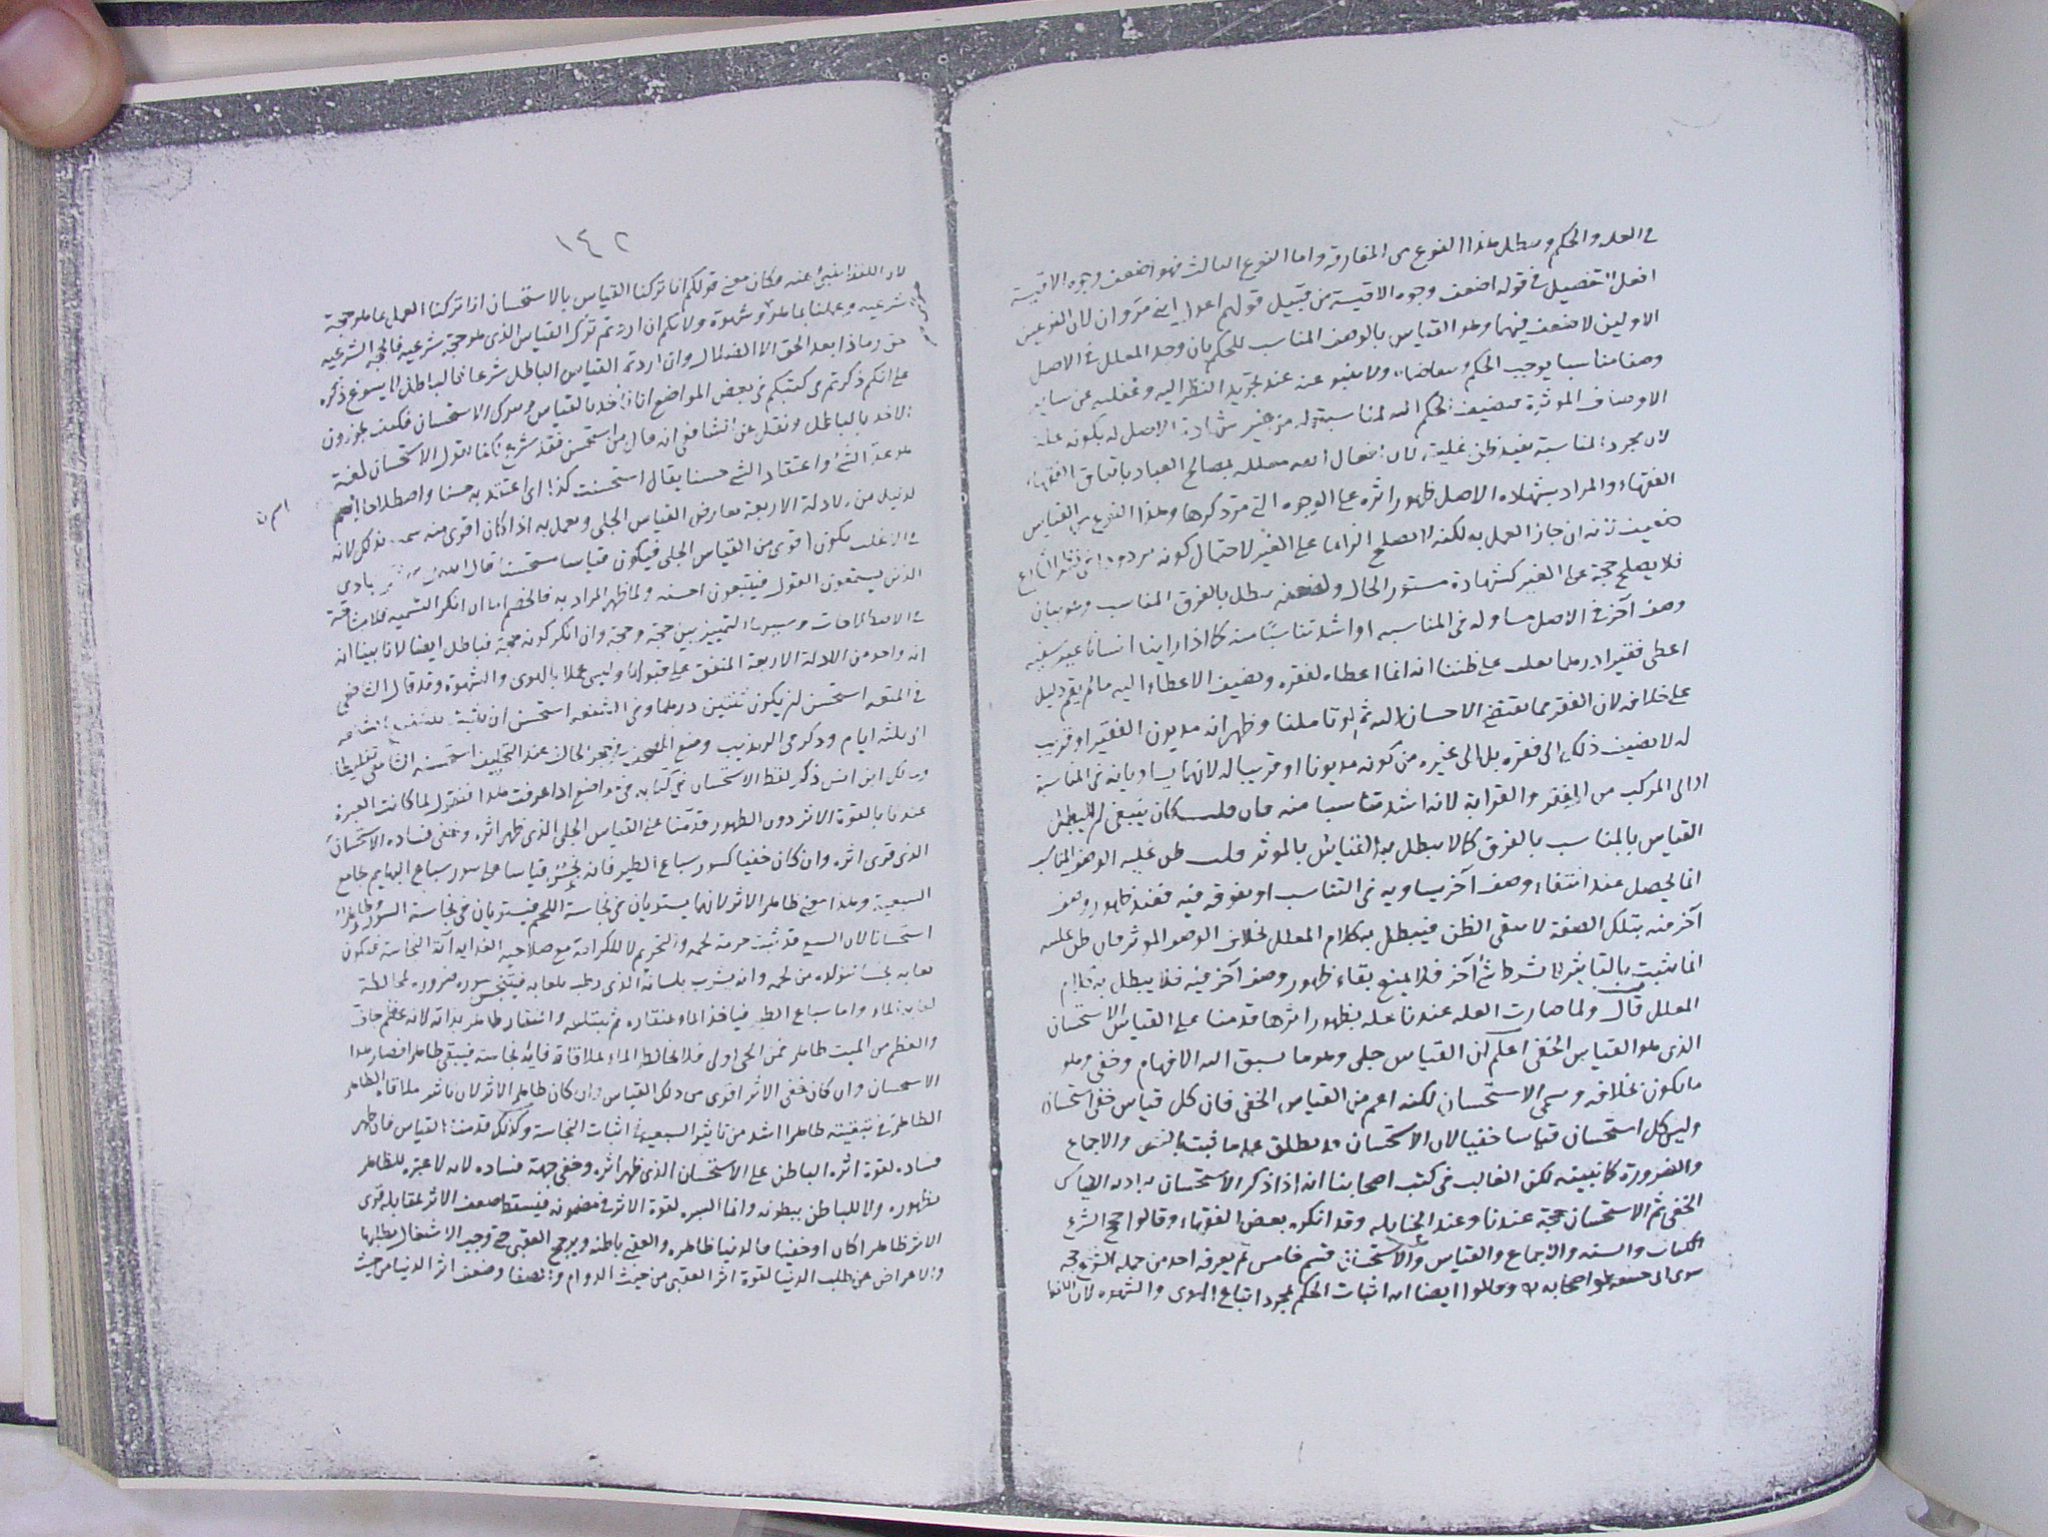 في العله والحكم وسطل هذا النوع من المفارقه واما النوع الثالث فهو اضعف وجوه الاقيسة
افعل التفضيل في قوله اضعف وجوه الاقيسة من قبيل قولهم اعدلا ابني مروان لان النوعين
الاولين لا ضعف فيهما وهو القياس بالوصف المناسب للحكم بان وجد المعلل في الاصل
وصفا مناسبا يوجب الحكم ولا ينبو عنه عند تجريد النظر اليه وغفليه عن سايه
الاوصاف الموثرة فيضيف الحكم اليه لمناسبة له من غير شهادة الاصل له بكونه علة
لان مجرد المناسبة يفيد ظن غلبية لان افعال الله معلله بمصالح العباد باتفاق الفقهاء
الفقهاء والمراد بشهاده الاصل ظهور اثره على الوجوه التي مر ذكرها وهذا النوع من القياس
ضعيف لانه ان جاز العمل به لكنه لا يصلح الزاما على الغير لاحتمال كونه مردودا في نظر الشارع
فلا يصلح حجة على الغير كشهادة مستور الحال ولضعفه يبطل بالفرق المناسب وهو بيان
وصف آخر في الاصل مساو له في المناسبه او اشد تناسبًا منه كما اذا راينا انسانا
اعطى فقيرا درهما يغلب على ظننا انه انما اعطاه لفقره ويضيف الاعطاء اليه مالم يقم دليل
على خلافه لان الفقر مما يقتضي الاحسان اليه ثم لو تاملنا وظهر انه مديون الفقير او قريب
له لا يضيف ذلك الى فقره بل الى غيره من كونه مديونا او قريبا له لانهما يساويانه في المناسبة
او الى المركب من الفقر والقرابة لانه اشد تناسبا منه فان قلت كان ينبغي ان لا يبطل
القياس بالمناسب بالفرق كما لا يبطل به القياس بالموثر قلت ظن غلبة الوصف المناسب
انما يحصل عند انتفاء وصف آخر يساويه في التناسب او يفوقه فيه فعند ظهور وصف
آخر منه بتلك الصفة لا يبقى الظن فيبطل به كلام المعلل بخلاف الوصف الموثر فان ظن عليته
انما يثبت بالتاثير لا بشرط شئ آخر فلا يمنع بقاء ظهور وصف آخر فيه فلا يبطل به كلام
المعلل قال ولما صارت العله عندنا عله بظهور اثرها قدمنا على القياس الاستحسان
الذي هو القياس الخفي اعلم ان القياس جلى وهو ما يسبق اليه الافهام وخفي وهو
ما يكون بخلافه وسمي الاستحسان لكنه اعم من القياس الخفي فان كل قياس خفي استحسان
وليس كل استحسان قياسا خفيا لان الاستحسان قد يطلق على ما ثبت بالنص والاجماع
والضرورة كما نبينه لكن الغالب في كتب اصحابنا انه اذا ذكر الاستحسان يراد به القياس
الخفي ثم الاستحسان حجة عندنا وعند الحنابله وقد انكره بعض الفقهاء وقالوا حجج الشرع
الكتاب والسنه والاجماع والقياس والاستحسان قسم خامس لم يعرفه احد من حمله الشرع حجه
سوى ابى حنيفه واصحابه وقالوا ايضا انه اثبات الحكم بمجرد اتباع الهوى والشهوه لان اللفظ
١٤٢
لان اللفظ ينبئ عنه فكان معنى قولكم انا تركنا القياس بالاستحسان انا تركنا العمل بما هو حجة
شرعيه وعملنا بما هو شهوة ولانكم ان اردتم ترك القياس الذي هو حجة شرعية فالحجة الشرعية
حق وماذا بعد الحق الا الضلال وان اردتم القياس الباطل شرعا فالباطل لا يسوغ ذكره
على انكم ذكرتم في كتبكم في بعض المواضع انا ناخذ بالقياس ونترك الاستحسان فكيف تجوزون
الاخذ بالباطل ونقل عن الشافعي انه قال من استحسن فقد شرع فانا نقول الاستحسان لغة
هو عد الشئ واعتقاد الشئ حسنا يقال استحسنت كذا اى اعتقدته حسنا واصطلاحا اسم
اسم ن
لدليل من الادلة الاربعة يعارض القياس الجلى ويعمل به اذا كان اقوى منه سمي بذلك لانه
في الاغلب يكون اقوى من القياس الجلى فيكون قياسا مستحسنا قال الله فبشر عبادى
الذين يستمعون القول فيتبعون احسنه ولما ظهر المراد به فالخصم اما ان انكر التسميه فلا مشاحة
في الاصطلاحات وسبيله التمييز بين حجة وحجة وان انكر كونه حجة فباطل ايضا لانا بينا انه
انه واحد من الادلة الاربعة المتفق على قبولها وليس عملا بالهوى والشهوة وقد قال الشافعي
في المتعه استحسن ان يكون ثلثين درهما وفي الشفعه استحسن ان يثبت للشفيع الشفعه
الى ثلثه ايام وذكر في التهذيب وضع المصحف في حجر الحالف عند التحليف استحسنه الشافعي تغليظا
ومالك ابن انس ذكر لفظ الاستحسان في كتابه في مواضع اذا عرفت هذا فنقول لما كانت العبرة
عندنا بالقوة الاثر دون الظهور قدمنا على القياس الجلى الذي ظهر اثره وخفي فساده الاستحسان
الذي قوى اثره وان كان خفيا كسور سباع الطير فانه نجس قياسا على سور سباع البهايم بجامع
السبعية وهذا معنى ظاهر الاثر لانهما يستويان في نجاسة اللحم فيستويان في نجاسة السور وطاهر
استحسانا لان السبع قد ثبت حرمة لحمه والتحريم لا للكرامة مع صلاحيه الغذاء آية النجاسة فيكون
لعابه نجسا لتولده من لحمه وانه يشرب بلسانه الذي رطب بلعابه فيتنجس سوره ضروره مخالطة
لعابه الماء واما سباع الطير فياخذ الماء بمنقاره ثم يبتلعه والمنقار طاهر بذاته لانه عظم جاف
والعظم من الميت طاهر فمن الحى اولى فلا يخالط الماء بملاقاة فايه نجاسة فيبقى طاهرا فصار هذا
الاستحسان وان كان خفي الاثر اقوى من ذلك القياس وان كان ظاهر الاثر لان تاثير ملاقاه الطاهر
الطاهر في تبقيته طاهرا اشد من تاثير السبعية في اثبات النجاسة وكذلك قدمنا القياس فان ظهر
فساده لقوة اثره الباطن على الاستحسان الذي ظهر اثره وخفي جهة فساده لانه لا عبرة للظاهر
بظهوره ولا للباطن ببطونه وانما العبره لقوة الاثر في مضمونه فيسقط ضعف الاثر لمقابله قوى
الاثر ظاهرا كان او خفيا فالدنيا ظاهره والعقبى باطنه ويرجح العقبى حتى وجب الاشتغال بطلبها
والاعراض عن طلب الدنيا لقوة اثر العقبى من حيث الدوام والصفا وضعف اثر الدنيا من حيث